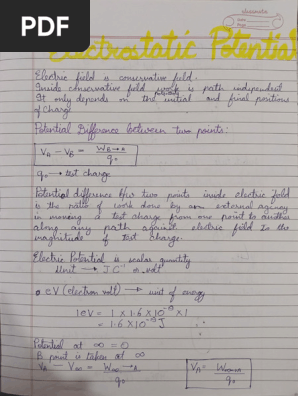 PDF
classmate
Electrostatic Potential
Electric field is conservative field.
Inside conservative field work is path independent
It only depends on the initial and final positions
of charge
Potential Difference between two points:
V_A - V_B = W_B→A / q₀
q₀ → test charge
Potential difference b/w two points inside electric field
is the ratio of work done by an external agency
in moving a test charge from one point to another
along any path against electric field to the
magnitude of test charge.
Electric Potential is scalar quantity
Unit → J C⁻¹ or volt
eV (electron volt) → unit of energy
1eV = 1 × 1.6 × 10⁻¹⁹ × 1
= 1.6 × 10⁻¹⁹ J
Potential at ∞ = 0
B point is taken at ∞
V_A - V_∞ = W_∞→A / q₀
V_A = W_∞→A / q₀